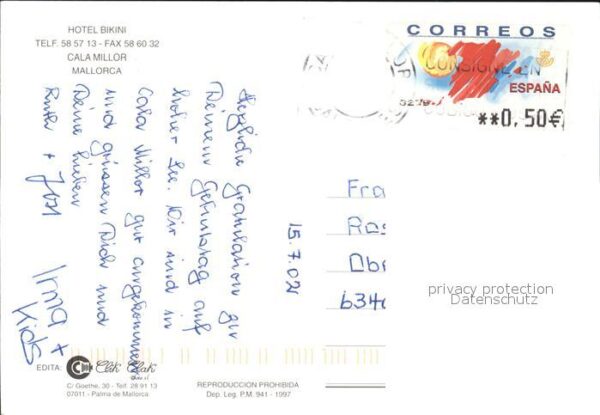 HOTEL BIKINI
TELF. 58 57 13 - FAX 58 60 32
CALA MILLOR
MALLORCA
CORREOS
CONSIGNE EN
ESPAÑA
**0,50€
Herzliche Gratulation zu
Deinem Geburtstag auf
hoher See. Wir sind in
Cala Millor gut angekommen
und grüssen Dich und
Deine Lieben
Ruth + Josi
Irma +
Kids
15.7.02
Fra
Ros
Obe
634
privacy protection
Datenschutz
EDITA:
Clik Clak
C/ Goethe, 30 - Telf. 28 91 13
07011 - Palma de Mallorca
REPRODUCCION PROHIBIDA
Dep. Leg. P.M. 941 - 1997